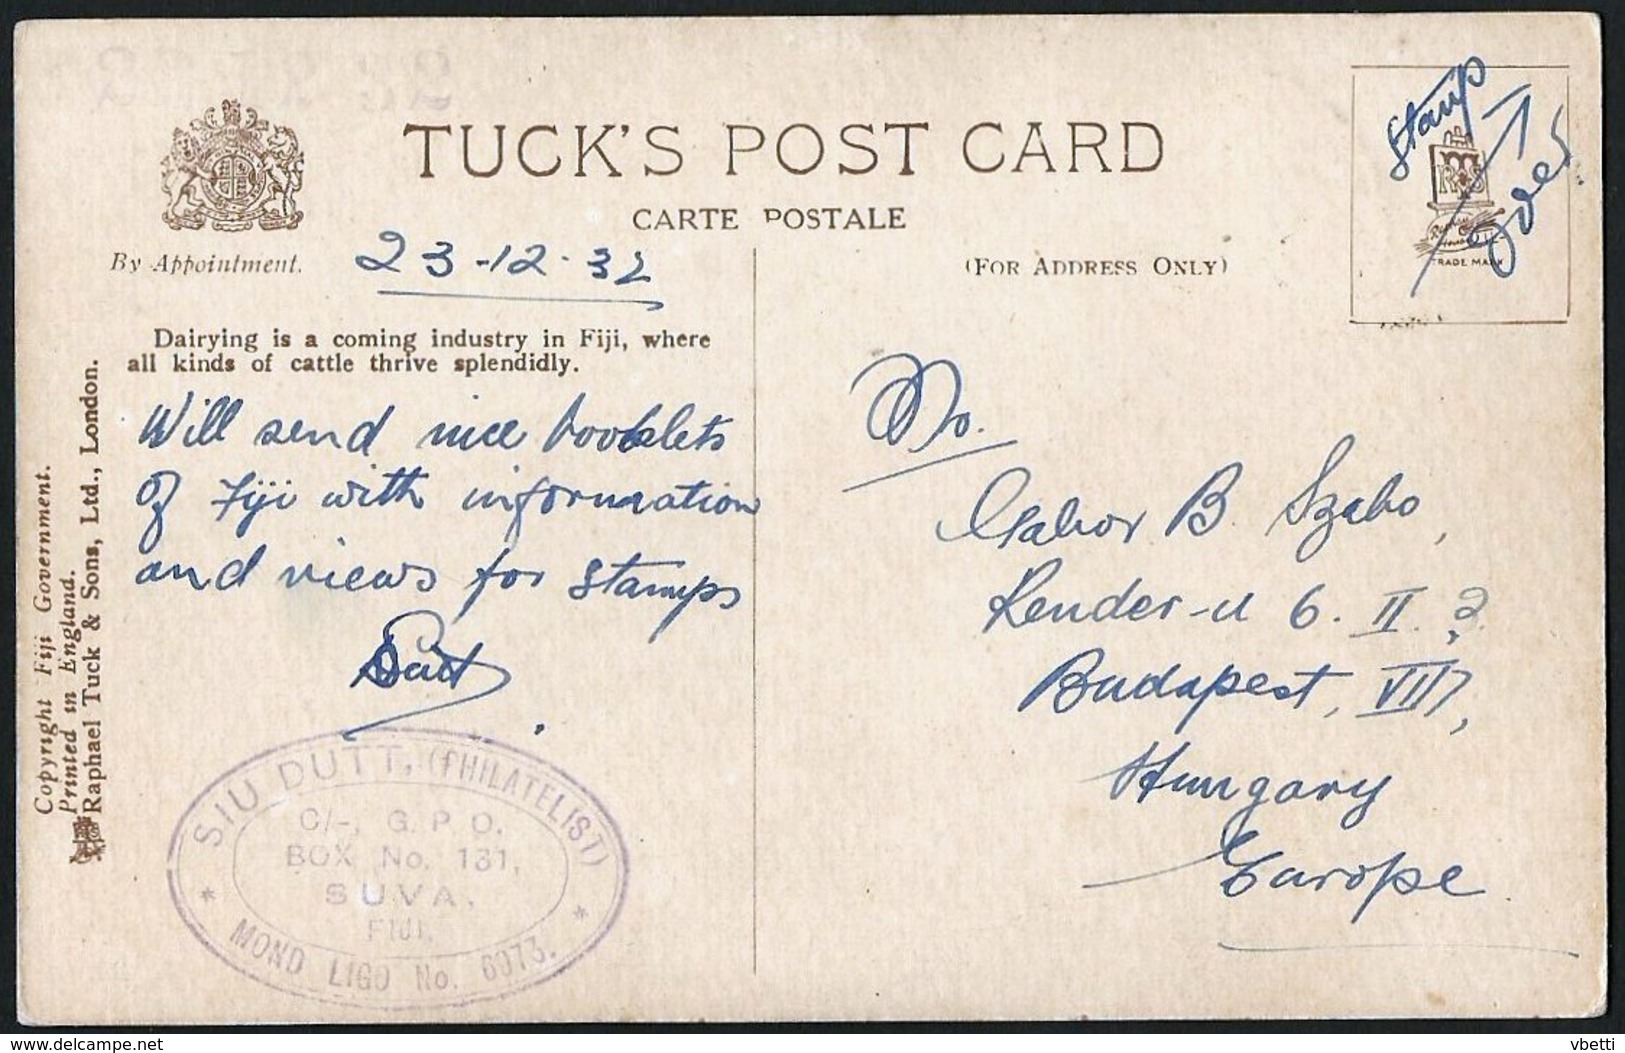 TUCK'S POST CARD
CARTE POSTALE
By Appointment.
23-12-32
(FOR ADDRESS ONLY)
Stamp
Over
TRADE MARK
Dairying is a coming industry in Fiji, where
all kinds of cattle thrive splendidly.
Will send nice booklets
of Fiji with information
and views for stamps
Dutt
Copyright Fiji Government.
Printed in England.
Raphael Tuck & Sons, Ltd., London.
SIU DUTT, (PHILATELIST)
C/-, G.P.O.
BOX No. 131,
SUVA,
FIJI.
MOND LIGO No. 6073.
Gabor B. Szabo,
Render-u 6. II. 2.
Budapest, VII,
Hungary
Europe
delcampe.net
vbetti